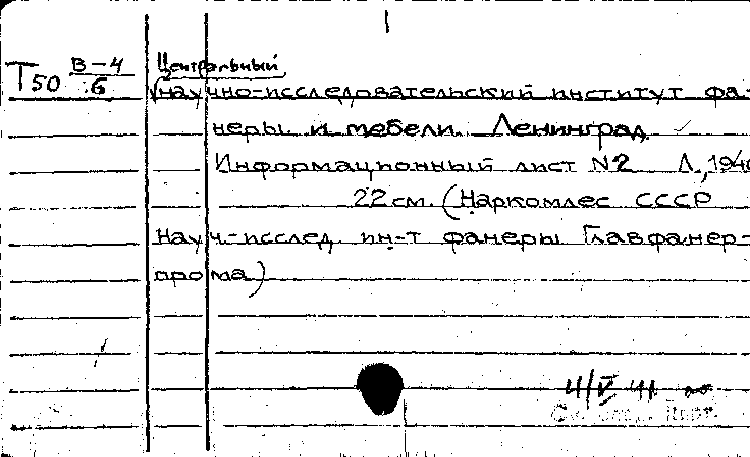 Т50 В-4/6
Центральный
научно-исследовательский институт фа-
неры и мебели. Ленинград
Информационный лист №2 Л., 194
22 см. (Наркомлес СССР
Науч.-исслед. ин-т фанеры Главфанер-
прома)
4/V 41